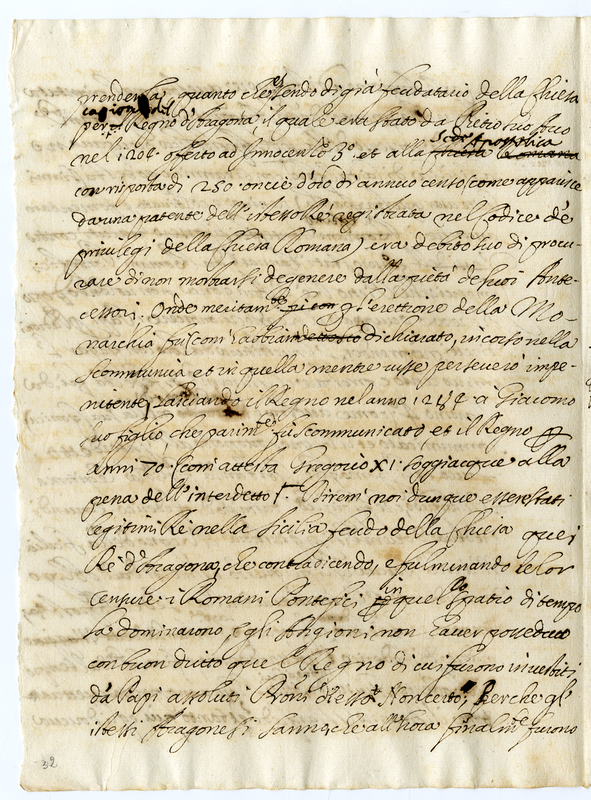 prenderla, quanto ch'essendo di già feudatario della Chiesa
cagion del
per il Regno d'Aragona il quale era stato da Pietro suo
nel 120 offerto ad Innocentio 3º. et alla Sede Apostolica
con risposta di 250 oncie d'oro di annuo censo (come apparisce
da una patente dell'istesso Rè registrata nel Codice de'
privilegi della Chiesa Romana) era debito suo di procu-
rare di non mostrarsi degenere dalla pietà de suoi Ante-
cessori. Onde meritam.te gl'erettione della Mo-
narchia fù, com'habbiam dichiarato, incorso nella
scommunica et in quella mentre visse perseverò impe-
nitente, Lasciando il Regno nel anno 12 à Giacomo
suo figlio che parim.te fù scommunicato, et il Regno
anni 70. (com'attesta Gregorio XI. soggiacque alla
pena dell'interdetto. Direm noi dunque essere stati
legitimi Rè nella Sicilia feudo della Chiesa quei
Rè d'Aragona, che contradicendo, e fulminando le lor
Censure i Romani Pontefici in quello spatio di tempo
la dominarono, e gli Angioini non haver posseduto
con buon dritto quel Regno di cui furono investiti
da Papi assoluti Pròni d'esso? Non certo; Perche gl'
istessi Aragonesi sanno, che all'hora finalm.te furono
32